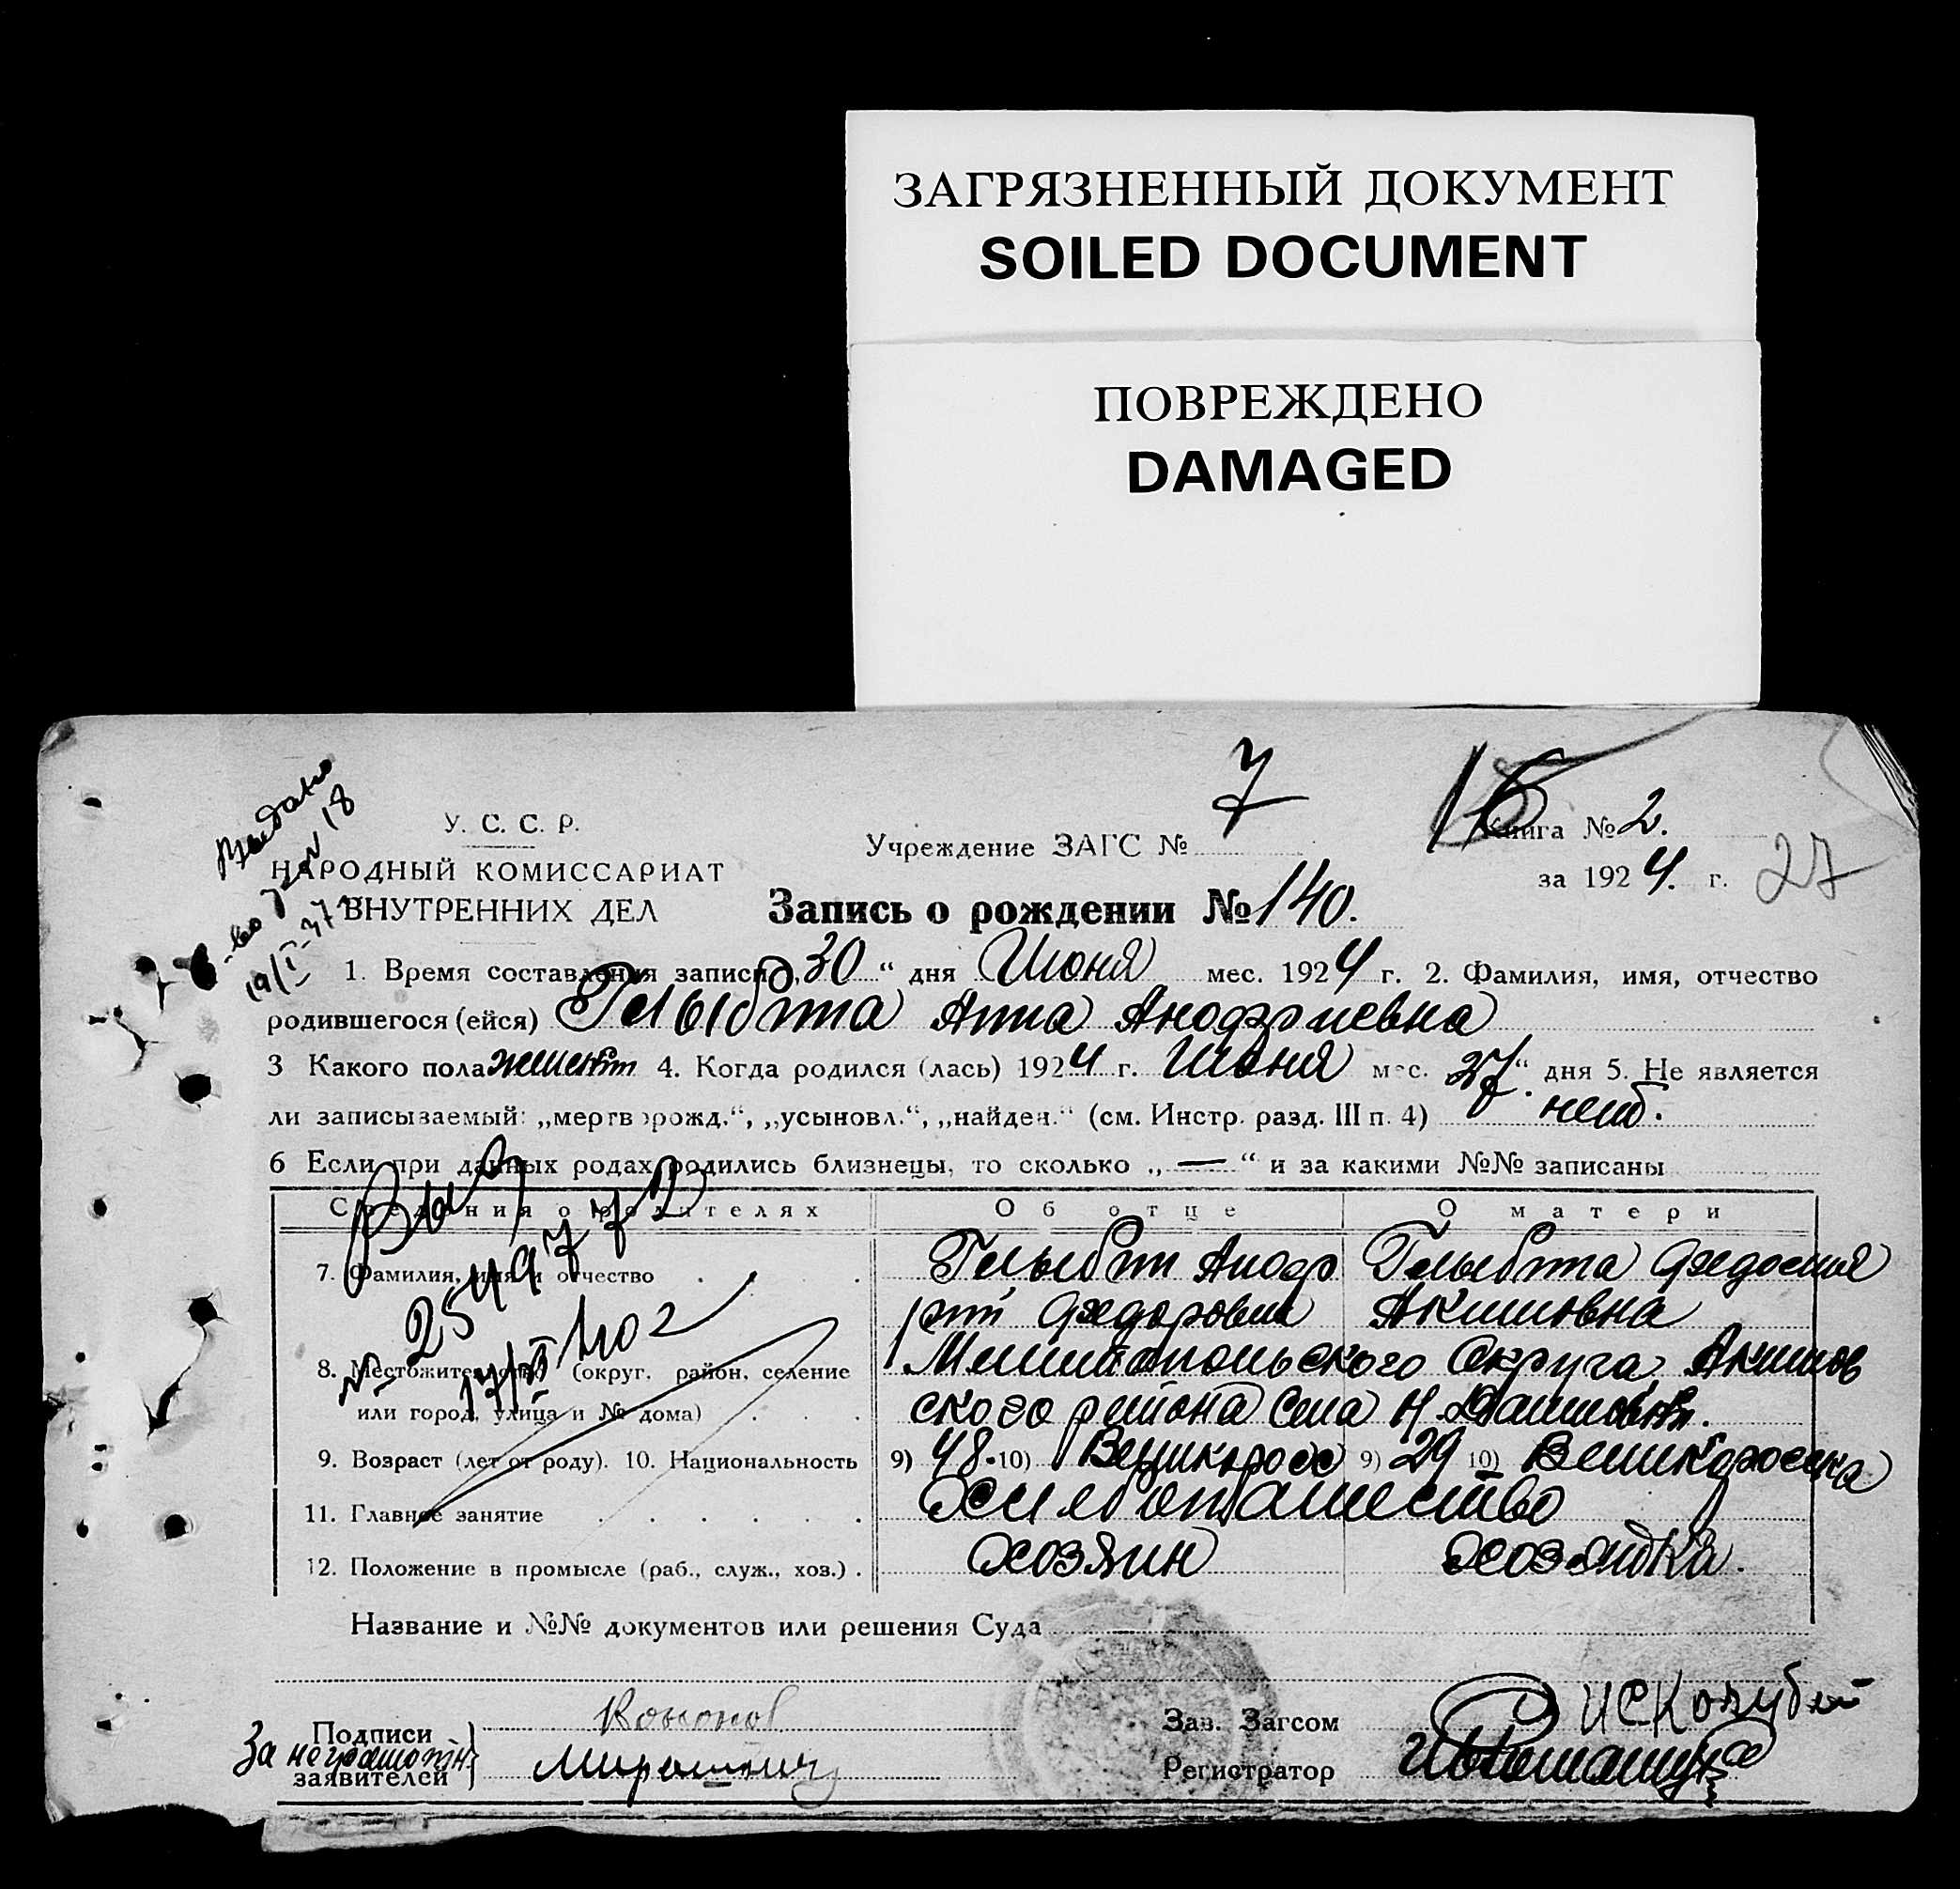 ЗАГРЯЗНЕННЫЙ ДОКУМЕНТ
SOILED DOCUMENT
ПОВРЕЖДЕНО
DAMAGED
Выдано
19/I-37
У. С. С. Р.
НАРОДНЫЙ КОМИССАРИАТ
ВНУТРЕННИХ ДЕЛ
Учреждение ЗАГС № 7
Книга № 2.
за 1924. г.
27
Запись о рождении № 140.
1. Время составления записи „30“ дня Июня мес. 1924 г. 2. Фамилия, имя, отчество
родившегося (ейся) Анна
3 Какого пола 4. Когда родился (лась) 1924 г. Июня мес. 27“ дня 5. Не является
ли записываемый: „мертворожд.“, „усыновл.“, „найден.“ (см. Инстр. разд. III п. 4) нет.
6 Если при данных родах родились близнецы, то сколько „—“ и за какими №№ записаны
Сведения о родителях Об отце О матери
7. Фамилия, имя и отчество
Акимовна
8. Местожительство (округ, район, селение Мелитопольского Округа Акимов
или город, улица и № дома) ского района Села
9. Возраст (лет от роду). 10. Национальность 9) 48. 10) Великоросс 9) 29 10) Великоросска
11. Главное занятие Хлебопашество
12. Положение в промысле (раб., служ., хоз.) . хозяин хозяйка.
Название и №№ документов или решения Суда
Подписи Кононов
За неграмотн.
заявителей
Зав. Загсом
Регистратор